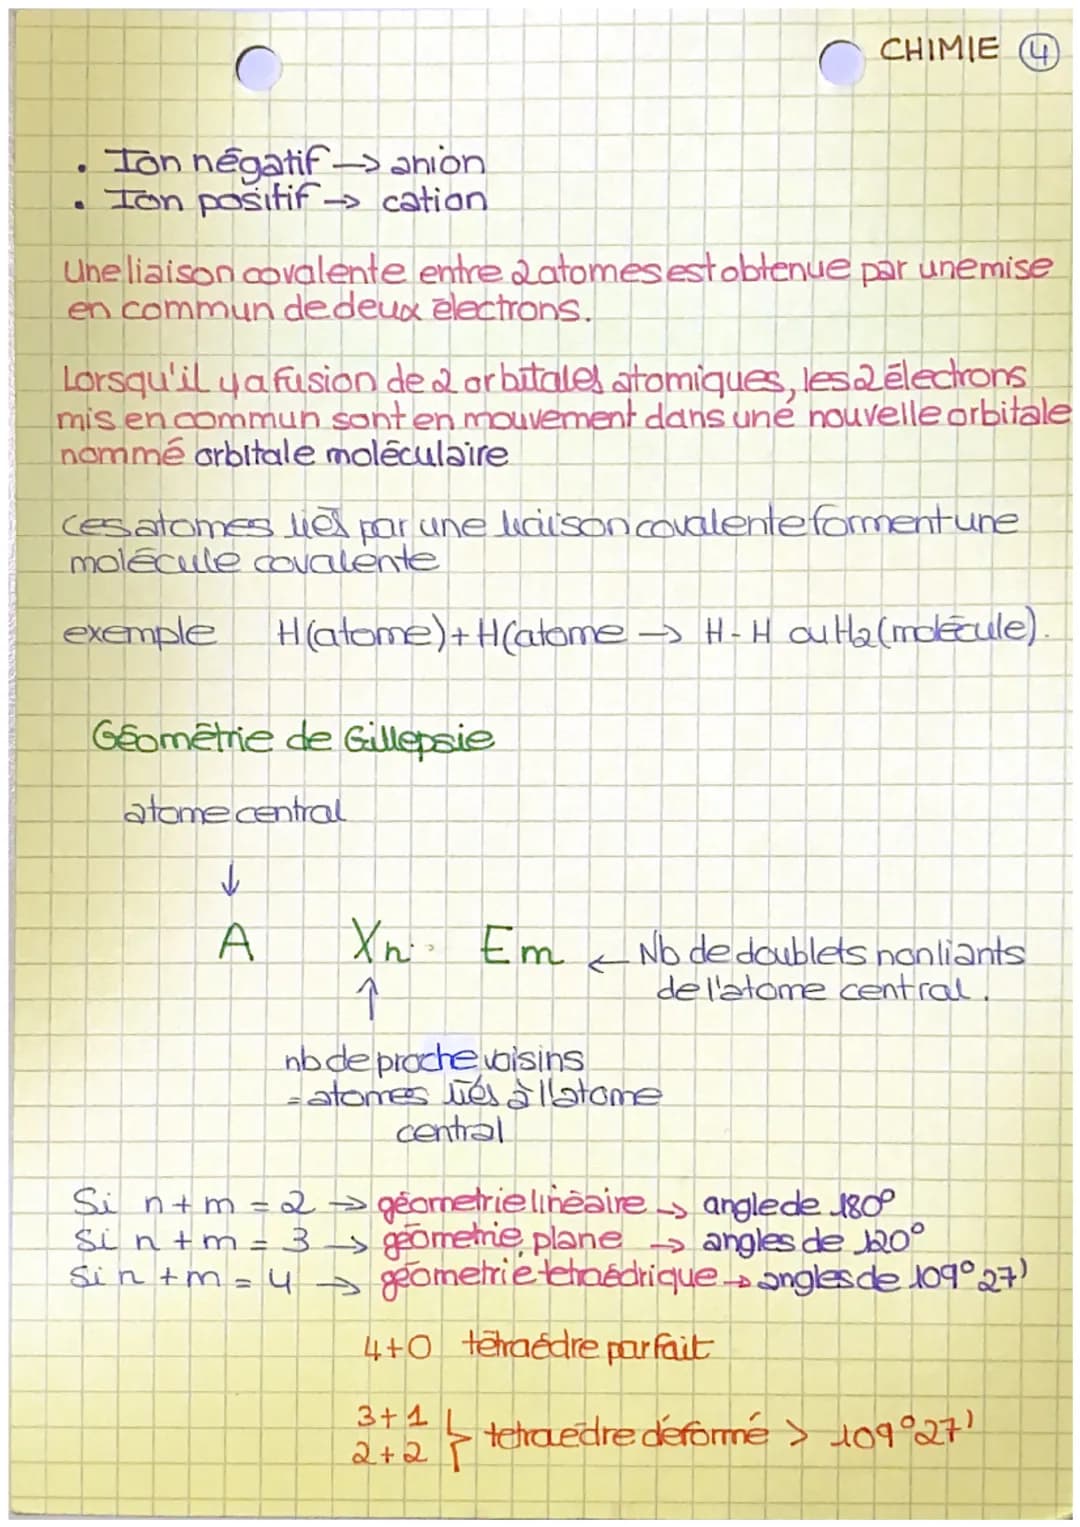 CHIMIE 4
• Ion négatif → anion
• Ion positif → cation
Une liaison covalente entre 2 atomes est obtenue par une mise
en commun de deux électrons.
Lorsqu'il y a fusion de 2 orbitales atomiques, les 2 électrons
mis en commun sont en mouvement dans une nouvelle orbitale
nommé orbitale moléculaire
Ces atomes liés par une liaison covalente forment une
molécule covalente
exemple H(atome) + H(atome → H-H ou H2 (molécule).
Géométrie de Gillepsie
atome central
↓
A Xn Em ← Nb de doublets non liants
de l'atome central.
↑
nb de proche voisins
= atomes liés à l'atome
central
Si n + m = 2 → géometrie linéaire → angle de 180°
Si n + m = 3 → géometrie plane → angles de 120°
Si n + m = 4 → géometrie tetraédrique → angles de 109° 27'
4+0 tétraédre parfait
3+1
2+2 } tetraedre déformé > 109°27'